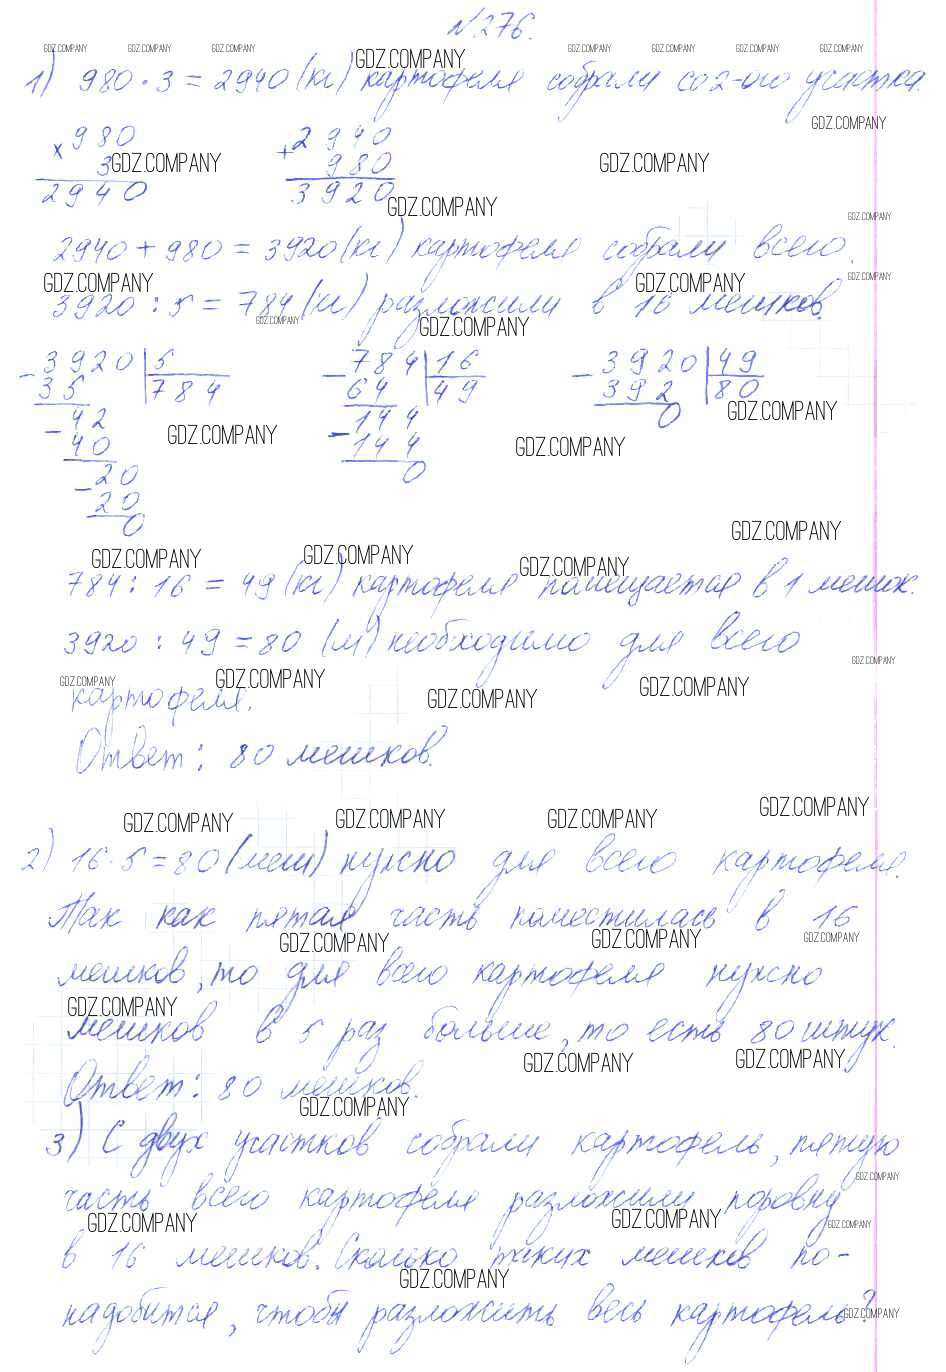 №276.
1) 980 · 3 = 2940 (кг) картофеля собрали со 2-ого участка.
× 980 + 2940
3 980
2940 3920
2940 + 980 = 3920 (кг) картофеля собрали всего.
3920 : 5 = 784 (кг) разложили в 16 мешков.
- 3920 | 5 - 784 | 16 - 3920 | 49
35 | 784 64 | 49 392 | 80
- 42 - 144 0
40 144
- 20 0
20
0
784 : 16 = 49 (кг) картофеля помещается в 1 мешок.
3920 : 49 = 80 (м) необходимо для всего
картофеля.
Ответ: 80 мешков.
2) 16 · 5 = 80 (меш) нужно для всего картофеля.
Так как пятая часть поместилась в 16
мешков, то для всего картофеля нужно
мешков в 5 раз больше, то есть 80 штук.
Ответ: 80 мешков.
3) С двух участков собрали картофель, пятую
часть всего картофеля разложили поровну
в 16 мешков. Сколько таких мешков по-
надобится, чтобы разложить весь картофель?
GDZ.COMPANY